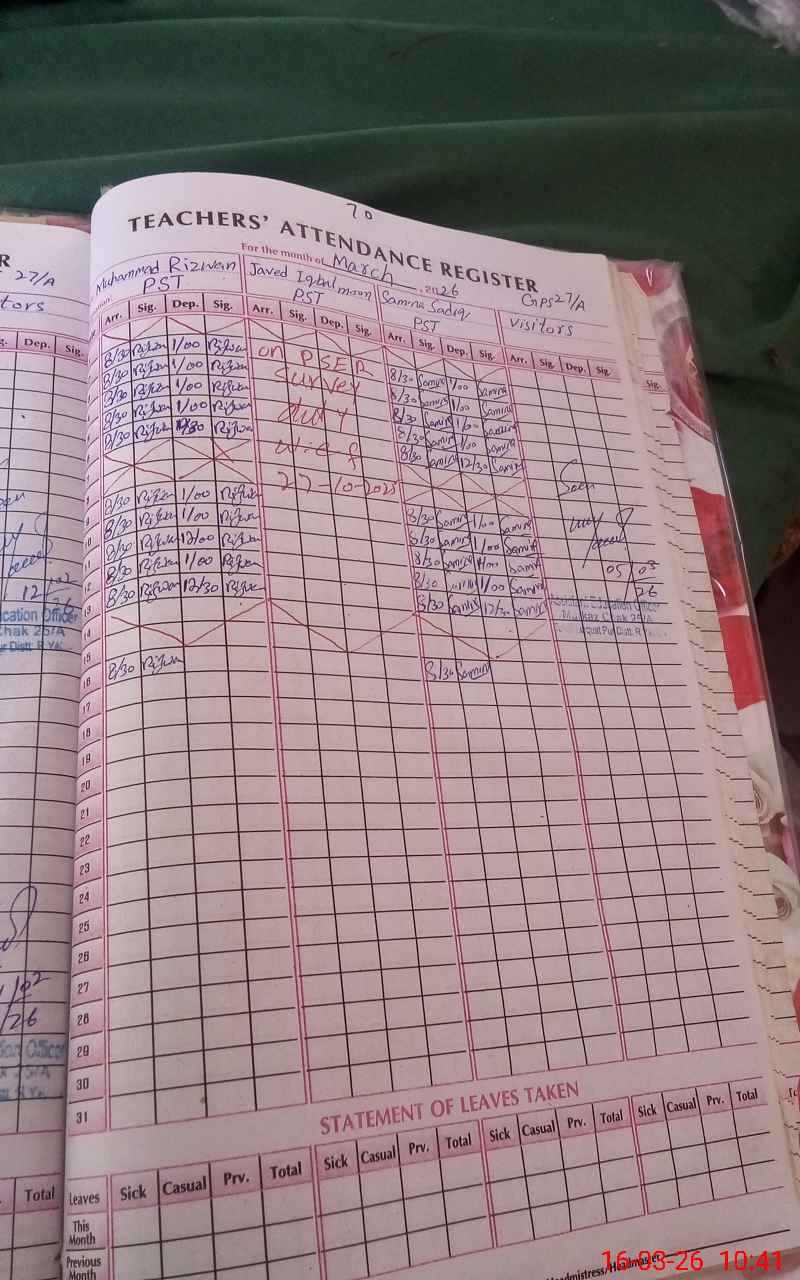 70
TEACHERS' ATTENDANCE REGISTER
R
For the month of March 2026
27/A
GPS27/A
Muhammad Rizwan
Javed Iqbal moon
Samina Sadiq
Visitors
PST
PST
PST
tors
Arr. Sig. Dep. Sig. Arr. Sig. Dep. Sig. Arr. Sig. Dep. Sig. Arr. Sig. Dep. Sig.
Dep. Sig.
8/30 Rizwan 1/00 Rizwan
8/30 Samina 1/00 Samina
8/30 Rizwan 1/00 Rizwan
8/30 Samina 1/00 Samina
8/30 Rizwan 1/00 Rizwan
8/30 Samina 1/00 Samina
8/30 Rizwan 1/00 Rizwan
8/30 Samina 1/00 Samina
8/30 Rizwan 12/30 Rizwan
8/30 Samina 12/30 Samina
on PSER
Survey
duty
w.e.f
22-10-2025
7
8
9 8/30 Rizwan 1/00 Rizwan
8/30 Samina 1/00 Samina
10 8/30 Rizwan 1/00 Rizwan
8/30 Samina 1/00 Samina
11 8/30 Rizwan 1/00 Rizwan
8/30 Samina 1/00 Samina
12 8/30 Rizwan 1/00 Rizwan
8/30 Samina 1/00 Samina
13 8/30 Rizwan 12/30 Rizwan
8/30 Samina 12/30 Samina
14
15
16 8/30 Rizwan
8/30 Samina
Seen
05/03
26
Assistant Education Officer
Markaz Chak 25/A
17
18
19
20
21
22
23
24
25
26
27
28
29
30
31
STATEMENT OF LEAVES TAKEN
Leaves Sick Casual Prv. Total Sick Casual Prv. Total Sick Casual Prv. Total Sick Casual Prv. Total
This Month
Previous Month
Total
16-03-26 10:41